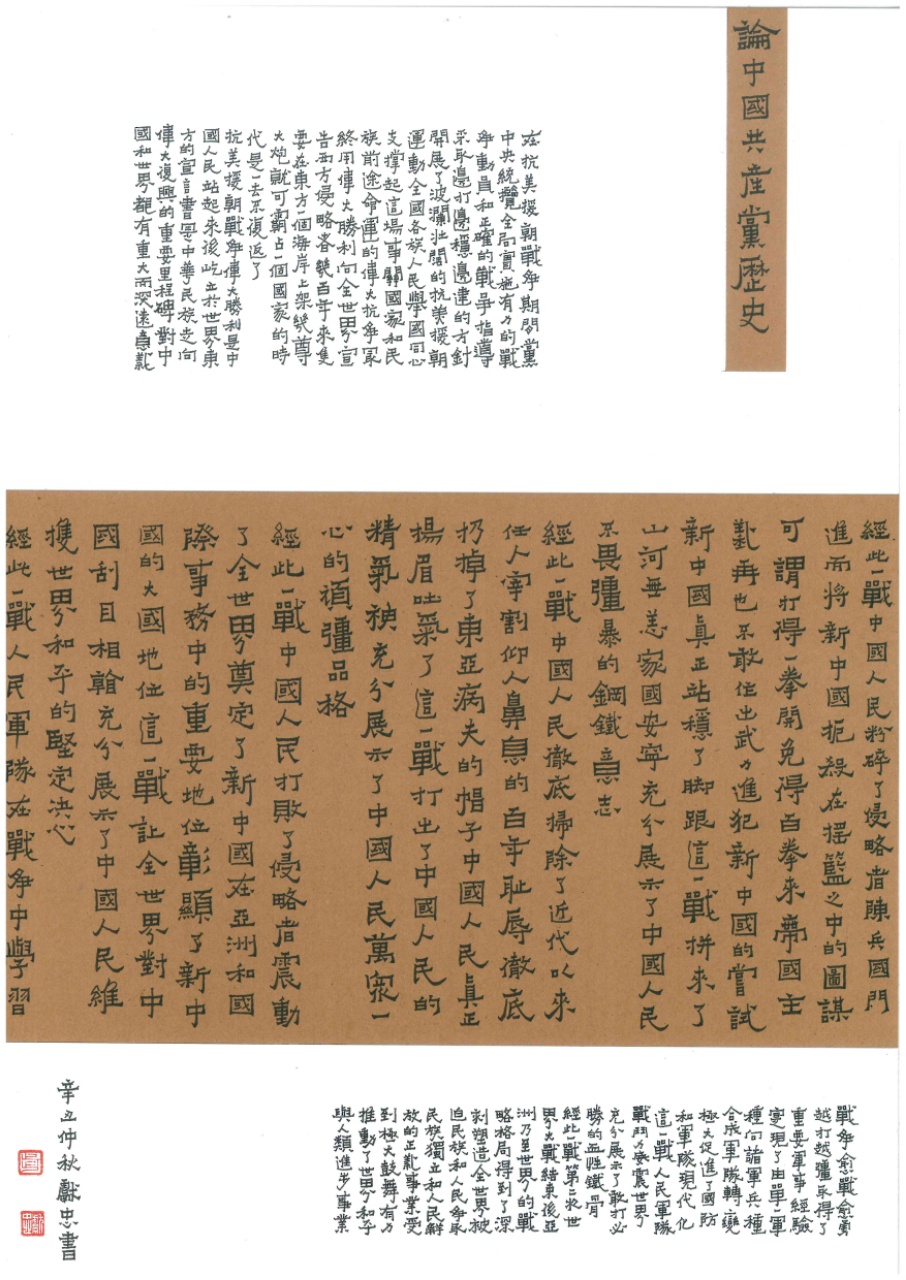 論中國共產黨歷史
在抗美援朝戰爭期間黨
中央統攬全局實施有力的戰
爭動員和正確的戰爭指導
采取邊打邊穩邊建的方針
開展了波瀾壯闊的抗美援朝
運動全國各族人民舉國同心
支撐起這場事關國家和民
族前途命運的偉大抗爭最
終用偉大勝利向全世界宣
告西方侵略者幾百年來隻
要在東方一個海岸上架幾尊
大炮就可霸占一個國家的時
代是一去不復返了
抗美援朝戰爭偉大勝利是中
國人民站起來後屹立於世界東
方的宣言書是中華民族走向
偉大復興的重要里程碑對中
國和世界都有重大而深遠意義
經此一戰中國人民粉碎了侵略者陳兵國門
進而將新中國扼殺在搖籃之中的圖謀
可謂打得一拳開免得百拳來帝國主
義再也不敢作出武力進犯新中國的嘗試
新中國真正站穩了脚跟這一戰拼來了
山河無恙家國安寧充分展示了中國人民
不畏彊暴的鋼鐵意志
經此一戰中國人民徹底掃除了近代以來
任人宰割仰人鼻息的百年耻辱徹底
扔掉了東亞病夫的帽子中國人民真正
揚眉吐氣了這一戰打出了中國人民的
精氣神充分展示了中國人民萬衆一
心的頑彊品格
經此一戰中國人民打敗了侵略者震動
了全世界奠定了新中國在亞洲和國
際事務中的重要地位彰顯了新中
國的大國地位這一戰讓全世界對中
國刮目相看充分展示了中國人民維
護世界和平的堅定決心
經此一戰人民軍隊在戰爭中學習
戰爭愈戰愈勇
越打越彊取得了
重要軍事經驗
實現了由單一軍
種向諸軍兵種
合成軍隊轉變
極大促進了國防
和軍隊現代化
這一戰人民軍隊
戰鬥力威震世界
充分展示了敢打必
勝的血性鐵骨
經此一戰第二次世
界大戰結束後亞
洲乃至世界的戰
略格局得到了深
刻塑造全世界被
迫民族和人民爭取
民族獨立和人民解
放的正義事業受
到極大鼓舞有力
推動了世界和平
與人類進步事業
辛丑仲秋獻忠書